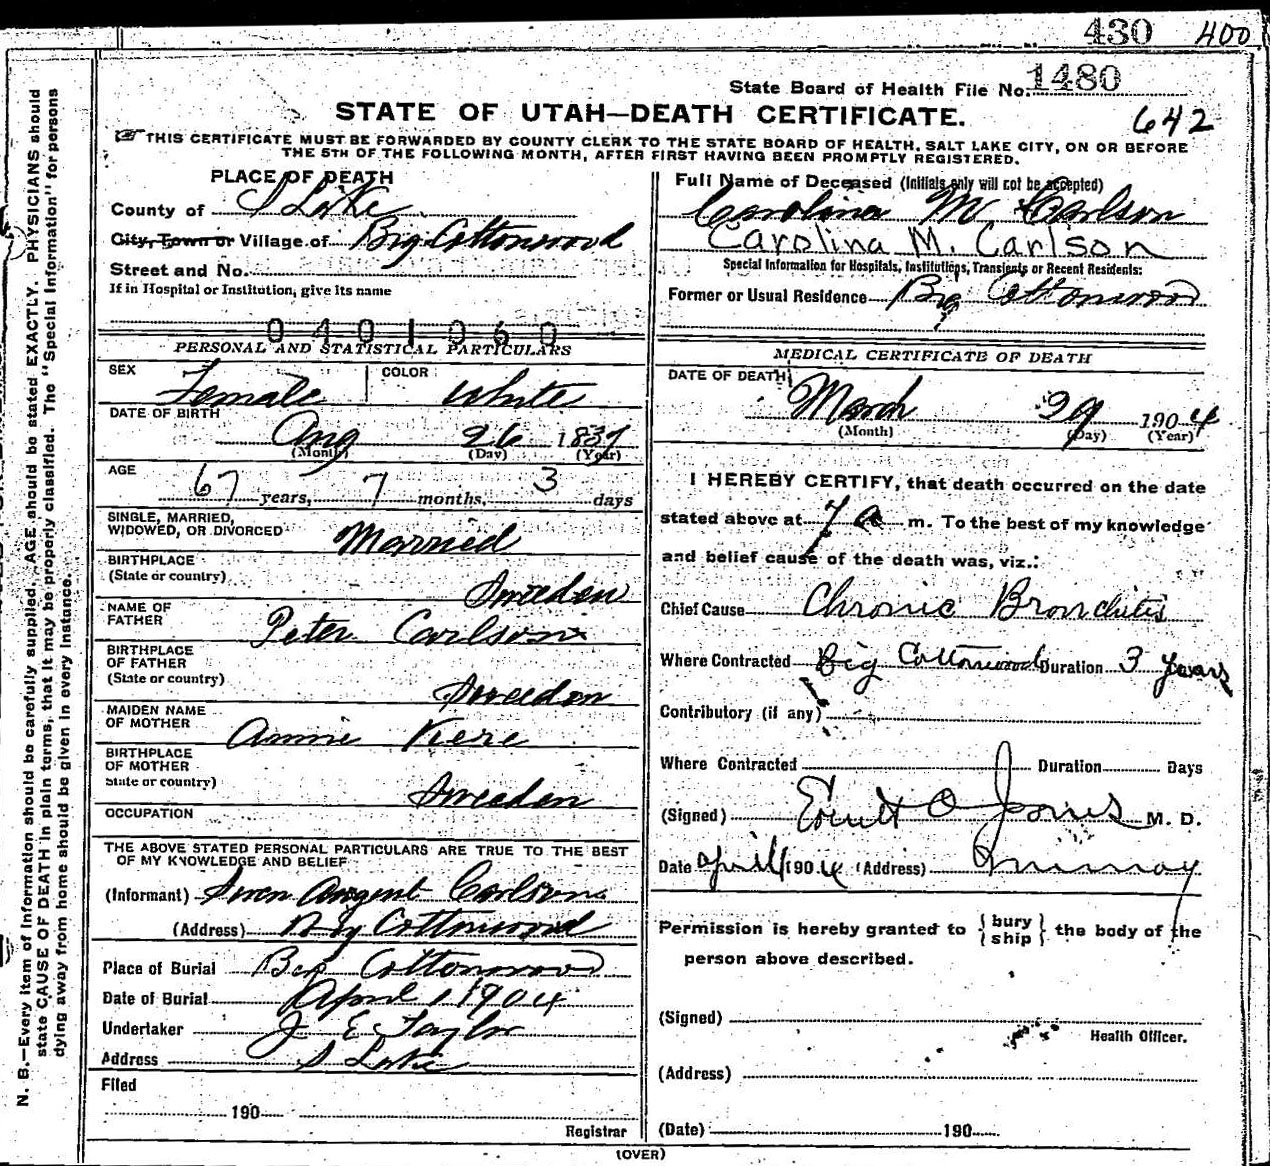 430 400
State Board of Health File No. 1480
STATE OF UTAH—DEATH CERTIFICATE.
642
☞ THIS CERTIFICATE MUST BE FORWARDED BY COUNTY CLERK TO THE STATE BOARD OF HEALTH, SALT LAKE CITY, ON OR BEFORE
THE 5TH OF THE FOLLOWING MONTH, AFTER FIRST HAVING BEEN PROMPTLY REGISTERED.
PLACE OF DEATH
County of S Lake
City, Town or Village of Big Cottonwood
Street and No.
If in Hospital or Institution, give its name
0401060
PERSONAL AND STATISTICAL PARTICULARS
SEX Female COLOR White
DATE OF BIRTH Aug 26 1837
(Month) (Day) (Year)
AGE 67 years, 7 months, 3 days
SINGLE, MARRIED,
WIDOWED, OR DIVORCED Married
BIRTHPLACE
(State or country) Sweden
NAME OF
FATHER Peter Carlson
BIRTHPLACE
OF FATHER
(State or country) Sweden
MAIDEN NAME
OF MOTHER Annie
BIRTHPLACE
OF MOTHER
State or country) Sweden
OCCUPATION
THE ABOVE STATED PERSONAL PARTICULARS ARE TRUE TO THE BEST
OF MY KNOWLEDGE AND BELIEF
(Informant) Swen Carlson
(Address) Big Cottonwood
Place of Burial Big Cottonwood
Date of Burial April 1 1904
Undertaker J E Taylor
Address S Lake
Filed
190
Registrar
Full Name of Deceased (Initials only will not be accepted)
Carolina M Carlson
Carolina M. Carlson
Special Information for Hospitals, Institutions, Transients or Recent Residents:
Former or Usual Residence Big Cottonwood
MEDICAL CERTIFICATE OF DEATH
DATE OF DEATH March 29 1904
(Month) (Day) (Year)
I HEREBY CERTIFY, that death occurred on the date
stated above at 7 a m. To the best of my knowledge
and belief cause of the death was, viz.:
Chief Cause Chronic Bronchitis
Where Contracted Big Cottonwood Duration 3 years
Contributory (if any)
Where Contracted Duration Days
(Signed) O Jones M. D.
Date April 1 1904 (Address) Murray
Permission is hereby granted to { bury ship } the body of the
person above described.
(Signed)
Health Officer.
(Address)
(Date) 190
(OVER)
N. B.—Every item of information should be carefully supplied. AGE should be stated EXACTLY. PHYSICIANS should
state CAUSE OF DEATH in plain terms, that it may be properly classified. The "Special Information" for persons
dying away from home should be given in every instance.